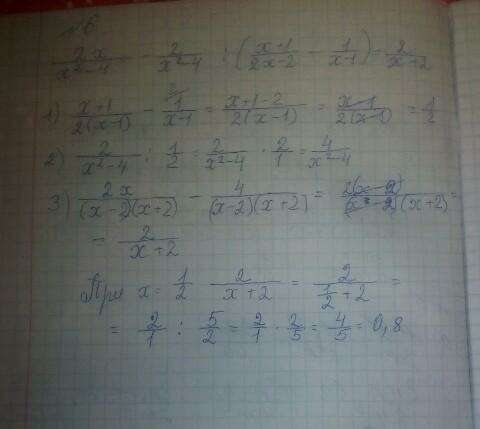 №6
2x/(x²-4) - 2/(x²-4) : ((x+1)/(2x-2) - 1/(x-1)) = 2/(x+2)
1) (x+1)/(2(x-1)) - ²⁄1/(x-1) = (x+1-2)/(2(x-1)) = (x-1)/(2(x-1)) = 1/2
2) 2/(x²-4) : 1/2 = 2/(x²-4) · 2/1 = 4/(x²-4)
3) 2x/((x-2)(x+2)) - 4/((x-2)(x+2)) = 2(x-2)/((x-2)(x+2)) =
= 2/(x+2)
При x = 1/2 2/(x+2) = 2/(1/2+2) =
= 2/1 : 5/2 = 2/1 · 2/5 = 4/5 = 0,8